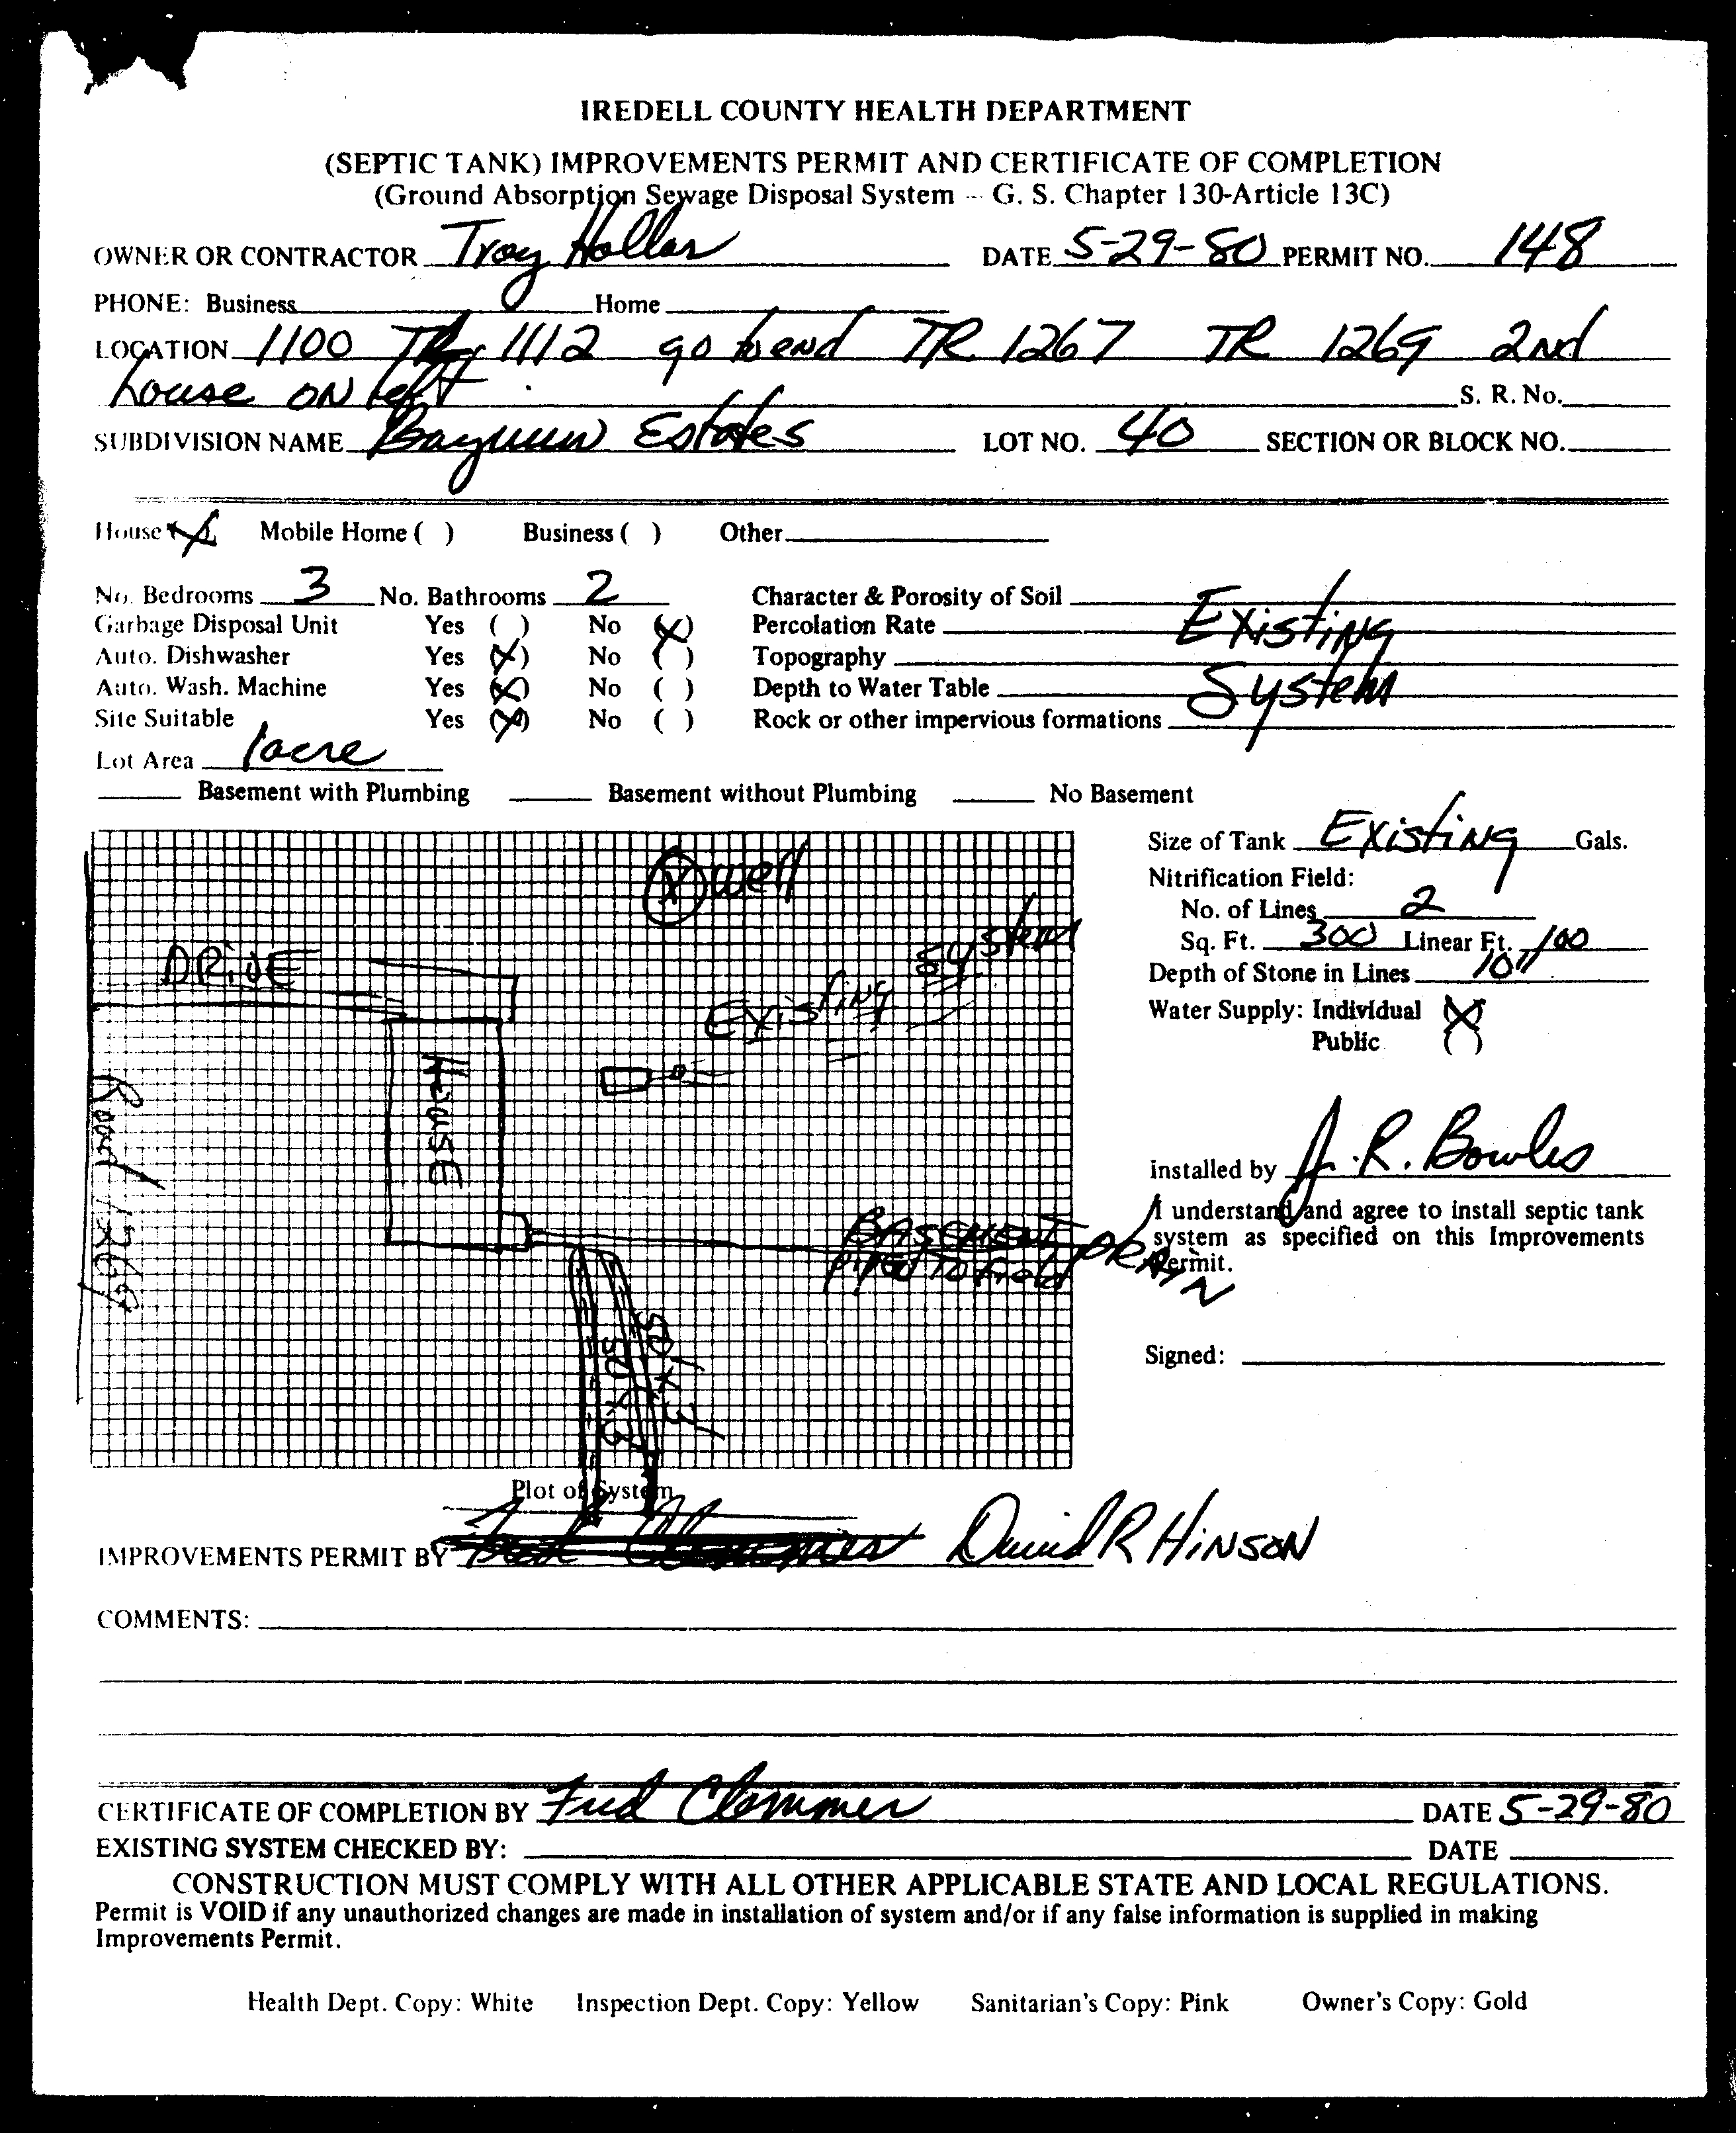 IREDELL COUNTY HEALTH DEPARTMENT
(SEPTIC TANK) IMPROVEMENTS PERMIT AND CERTIFICATE OF COMPLETION
(Ground Absorption Sewage Disposal System -- G. S. Chapter 130-Article 13C)
OWNER OR CONTRACTOR Troy Hollar DATE 5-29-80 PERMIT NO. 148
PHONE: Business Home
LOCATION 1100 TR 1112 go to end TR 1267 TR 1269 2nd
house ON left S. R. No.
SUBDIVISION NAME Bayview Estates LOT NO. 40 SECTION OR BLOCK NO.
House (X) Mobile Home ( ) Business ( ) Other
No. Bedrooms 3 No. Bathrooms 2 Character & Porosity of Soil
Garbage Disposal Unit Yes ( ) No (X) Percolation Rate Existing
Auto. Dishwasher Yes (X) No ( ) Topography
Auto. Wash. Machine Yes (X) No ( ) Depth to Water Table System
Site Suitable Yes (X) No ( ) Rock or other impervious formations
Lot Area 1 acre
Basement with Plumbing Basement without Plumbing No Basement
Size of Tank Existing Gals.
Nitrification Field:
No. of Lines 2
Sq. Ft. 300 Linear Ft. 100
Depth of Stone in Lines 10"
Water Supply: Individual (X)
Public ( )
Installed by J. R. Bowles
I understand and agree to install septic tank
system as specified on this Improvements
Permit.
Signed:
X well
DRIVE
Existing System
HOUSE
Road 1269
BASEMENT DRAIN
PIPED TO field
50' x 3'
50' x 3'
Plot of System
IMPROVEMENTS PERMIT BY David R HINSON
COMMENTS:
CERTIFICATE OF COMPLETION BY Fred Clommer DATE 5-29-80
EXISTING SYSTEM CHECKED BY: DATE
CONSTRUCTION MUST COMPLY WITH ALL OTHER APPLICABLE STATE AND LOCAL REGULATIONS.
Permit is VOID if any unauthorized changes are made in installation of system and/or if any false information is supplied in making
Improvements Permit.
Health Dept. Copy: White Inspection Dept. Copy: Yellow Sanitarian's Copy: Pink Owner's Copy: Gold